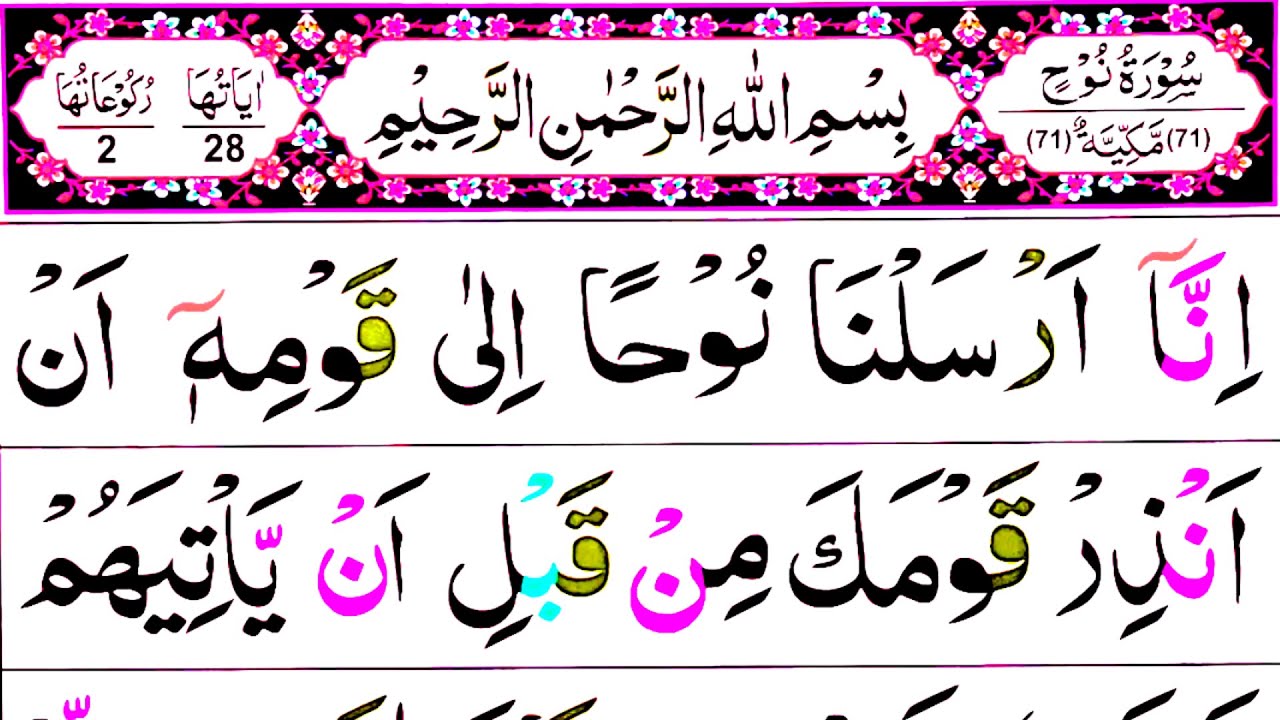 سُوْرَةُ نُوْحٍ
(71) مَّكِّيَّةٌ (71)
بِسْمِ اللّٰهِ الرَّحْمٰنِ الرَّحِيْمِ
اٰيَاتُهَا 28
رُكُوْعَاتُهَا 2
اِنَّاۤ اَرْسَلْنَا نُوْحًا اِلٰى قَوْمِهٖۤ اَنْ
اَنْذِرْ قَوْمَكَ مِنْ قَبْلِ اَنْ يَّاْتِيَهُمْ